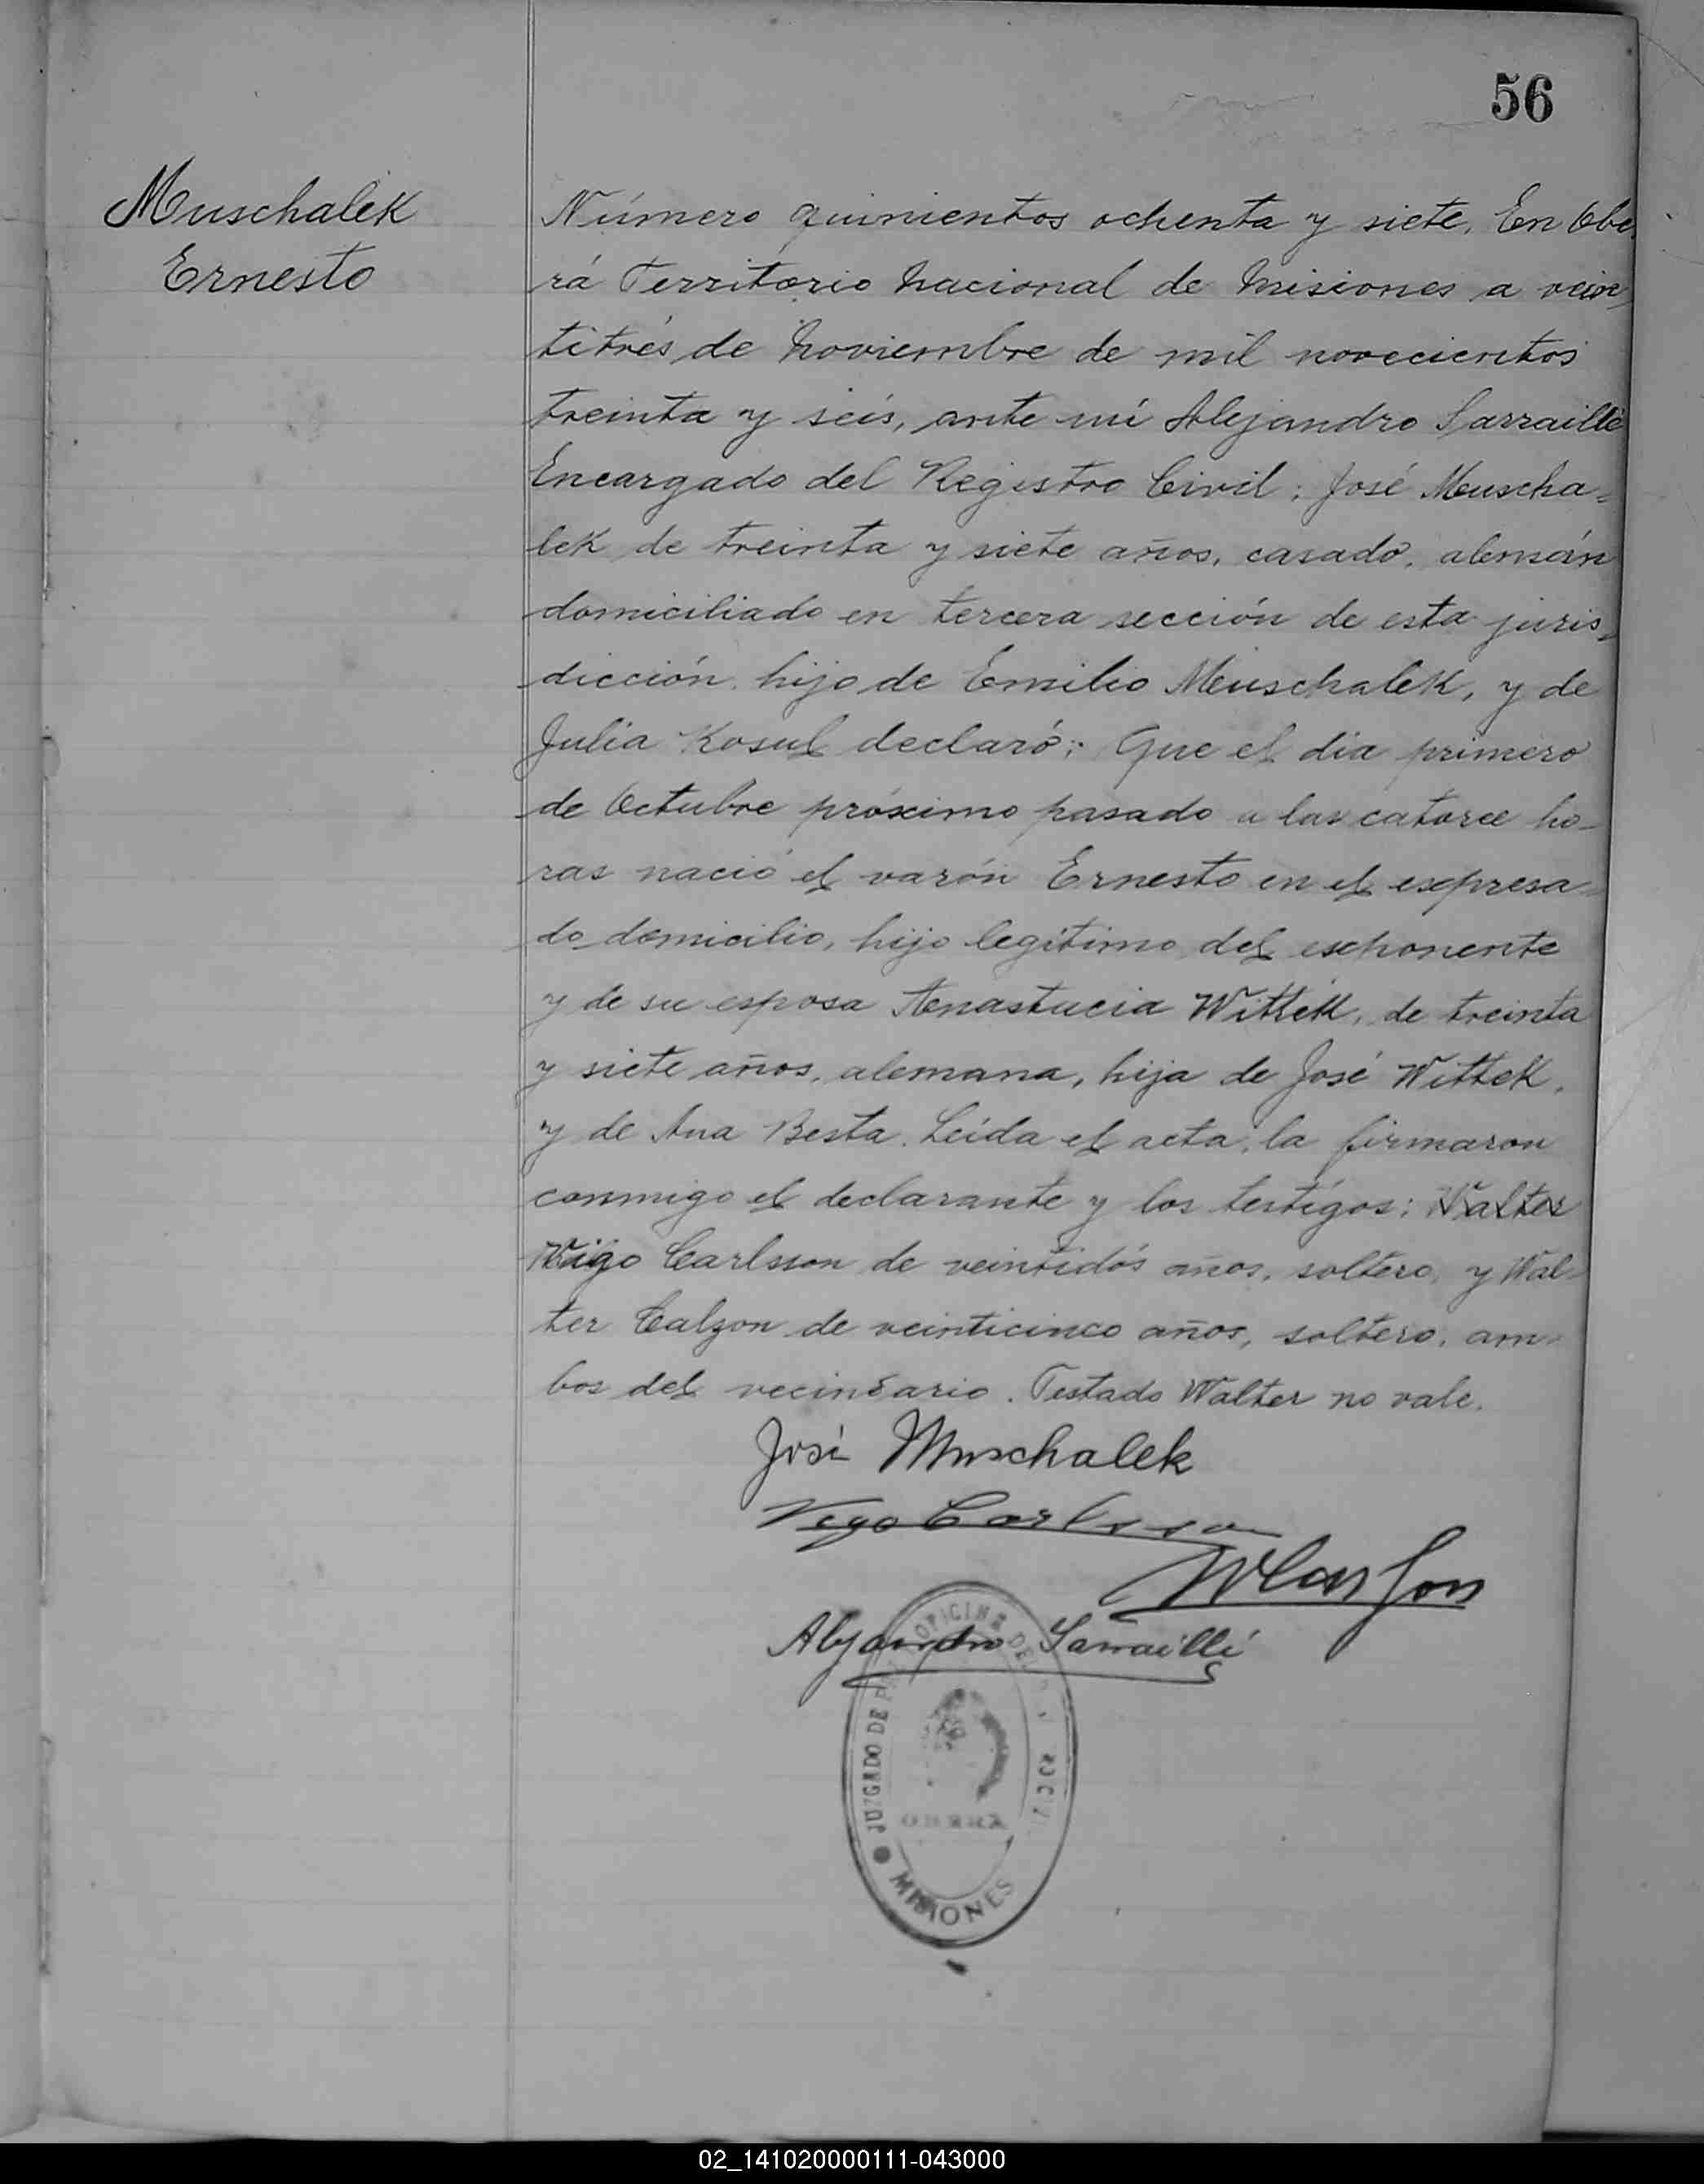 56
Muschalek
Ernesto
Número quinientos ochenta y siete. En Obe
rá Territorio Nacional de Misiones a vein
titrés de Noviembre de mil novecientos
treinta y seis, ante mí Alejandro Sarraillé
Encargado del Registro Civil: José Muscha=
lek de treinta y siete años, casado, alemán
domiciliado en tercera sección de esta juris=
dicción, hijo de Emilio Muschalek, y de
Julia Kosul declaró: Que el día primero
de Octubre próximo pasado a las catorce ho-
ras nació el varón Ernesto en el expresa=
do domicilio, hijo legítimo del exponente
y de su esposa Anastucia Wittek, de treinta
y siete años, alemana, hija de José Wittek,
y de Ana Besta. Leída el acta, la firmaron
conmigo el declarante y los testigos: Walter
Wigo Carlsson de veintidós años, soltero, y Wal=
ter Calzon de veinticinco años, soltero, am=
bos del vecindario. Testado Walter no vale.
José Muschalek
Vigo Carlsson
Alejandro Sarraillé
JUZGADO DE PAZ OFICINA DEL
OBERA
MISIONES
02_141020000111-043000